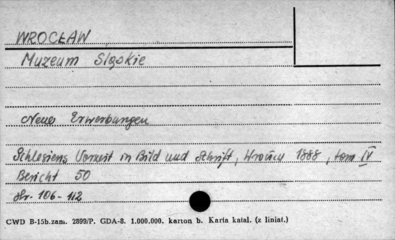 WROCŁAW
Muzeum Śląskie
Neue Erwerbungen
Schlesiens Vorzeit in Bild und Schrift, Wrocław 1888, tom IV
Bericht 50
str. 106-112
CWD B-15b.zam. 2809/P. GDA-8. 1.000.000. karton b. Karta katal. (z liniat.)